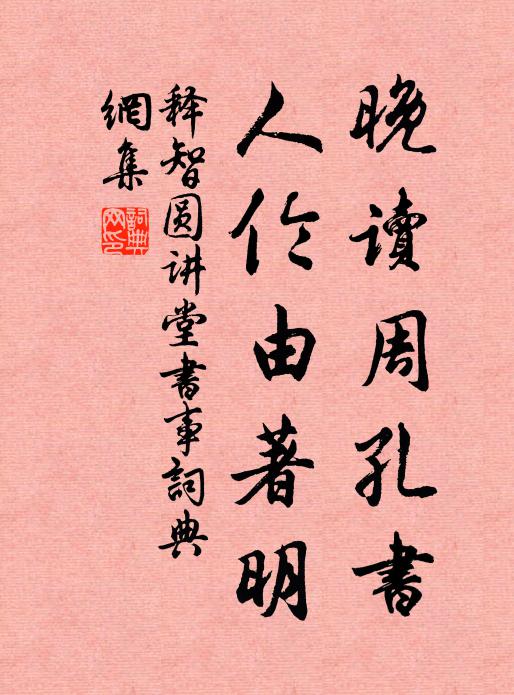 晚讀周孔書
人伦由著明
释智圆讲堂書事詞典
網集
詞典网印